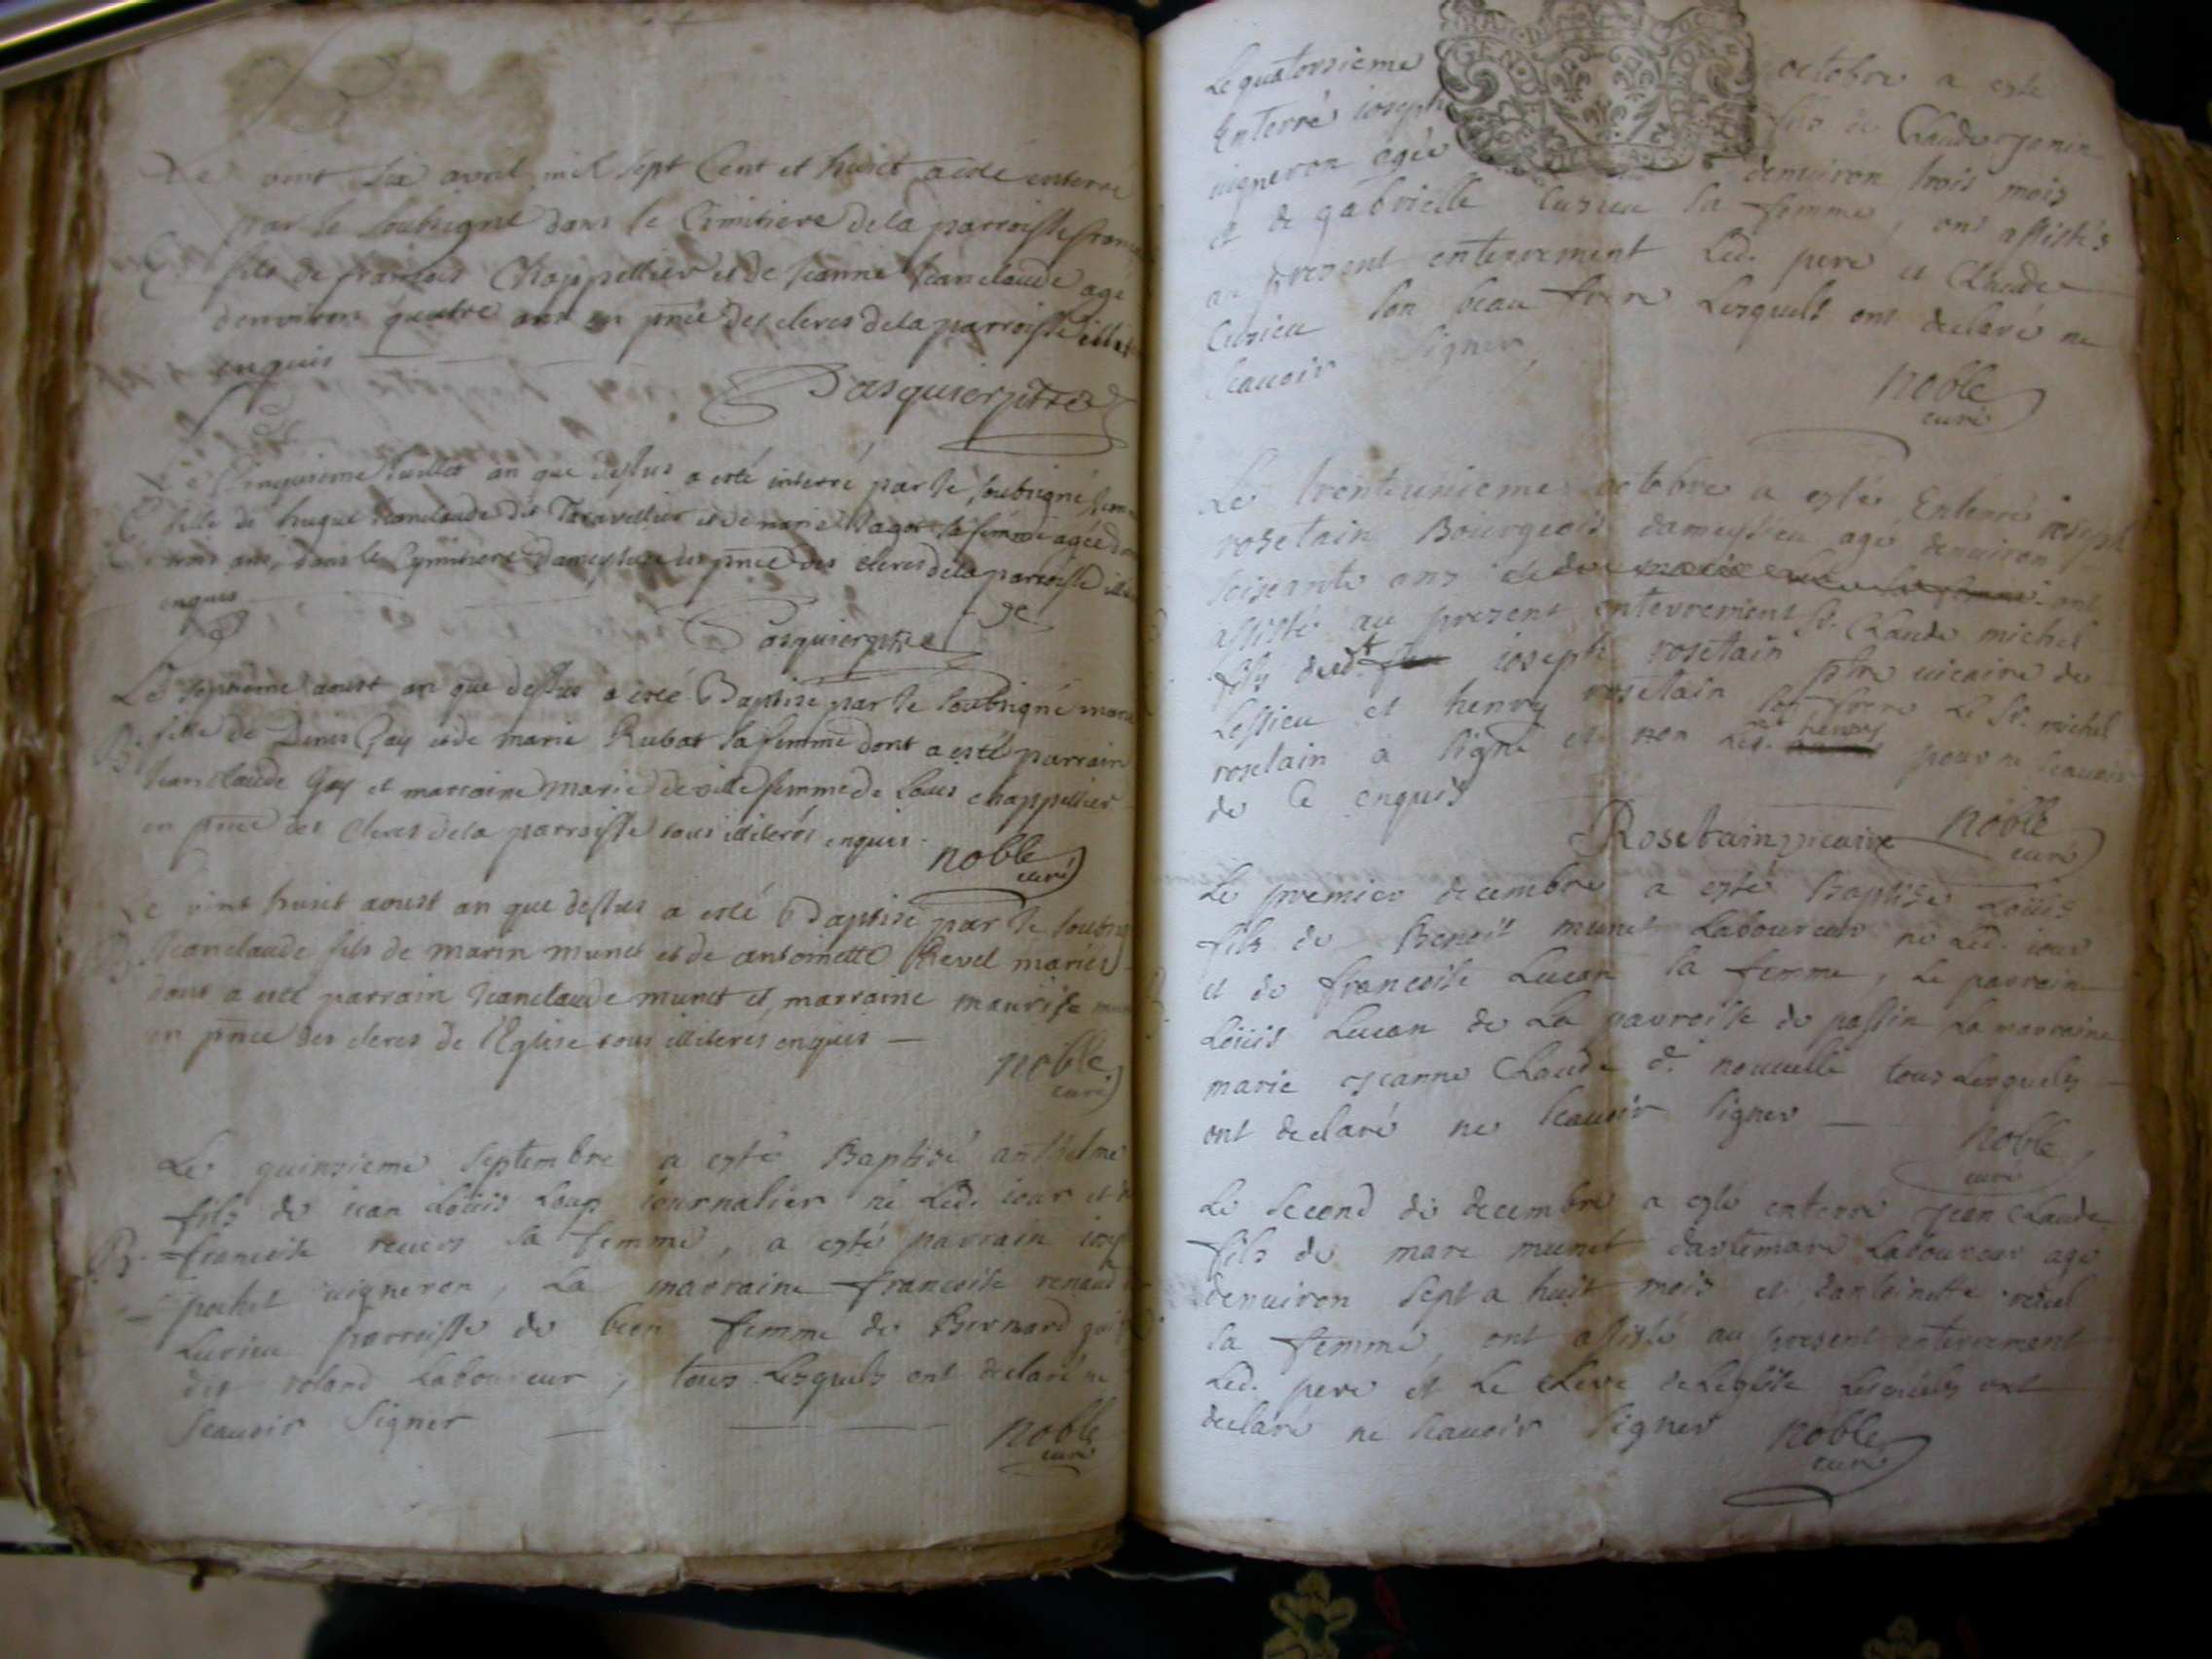 Le vint six avril mil sept Cent et huict a esté enterré
par le soubsigné dans le Cimitiere de la parroisse
fils de françois Chappellier et de Jeanne Jeanclaude agé
denviron quatre ans en pnce des clercs de la parroisse
enquis
Pasquier ptre
Le Cinquieme Juillet an que dessus a esté enterré par le soubsigné
fille de hugue Jeanclaude dit Taravellier et de marie sa femme agée
trois ans, dans le Cymitiere dameysieu en pnce des clercs de la parroisse
enquis
Pasquier ptre
Le septieme aoust an que dessus a esté Baptisé par le soubsigné
B. fille de Denis Gay et de marie Rubat sa femme dont a esté parrain
Jeanclaude Gay et marraine marie deville femme de Louis chappellier
en pnce des clercs de la parroisse tous illiterés enquis.
noble
curé
Le vint huict aoust an que dessus a esté Baptisé par le
B. Jeanclaude fils de marin munet et de antoinette Revel mariés
dont a esté parrain Jeanclaude munet et marraine maurise
en pnce des clercs de l'Eglise tous illiteres enquis —
noble
curé
Le quinsieme septembre a esté Baptisé anthelme
fils de iean Loüis Loup iournalier né Led. iour et
B. francoise sa femme, a esté parrain
pochet uigneron, La marraine francoise renaud
Lurieu parroisse de beon femme de Bernard
dit roland Laboureur, tous Lesquels ont declaré ne
scauoir signer
noble
curé
Le quatorsieme octobre a esté
Enterré ioseph fils de Claude Jenin
uigneron agée denuiron trois mois
et de gabrielle Cusieu sa femme, ont assistés
au present enterrement Led. pere et Claude
Cusieu son beau frere Lesquels ont declaré ne
scauoir signer
noble
curé
Le trenteunieme octobre a esté Enterré ioseph
rosetain Bourgeois dameysieu agé denuiron
soisente ans ont
assisté au present enterrement Sr. Claude michel
fils dud.t ioseph rosetain ptre uicaire de
Lessieu et henry rosetain son frere Le Sr. michel
rosetain a signé et non Led. henry pour ne scauoir
de Ce enquis
Rosetain vicaire noble
curé
Le premier decembre a esté Baptisé Loüis
fils de Benoit munet Laboureur né Led. iour
et de francoise Lucan sa femme, Le parrain
Loüis Lucan de La parroisse de passin La marraine
marie Jeanne Claude d. nouuelle tous Lesquels
ont declaré ne scauoir signer —
noble
curé
Le second de decembre a esté enterré Jean Claude
fils de marc munet dartemare Laboureur agé
denuiron sept a huit mois et dantoinette reuel
sa femme, ont assisté au present enterrement
Led. pere et Le clerc de Leglise Lesquels ont
declaré ne scauoir signer noble
curé